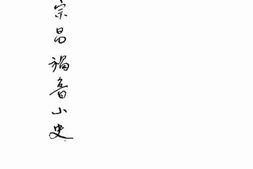 宗昌福音小史